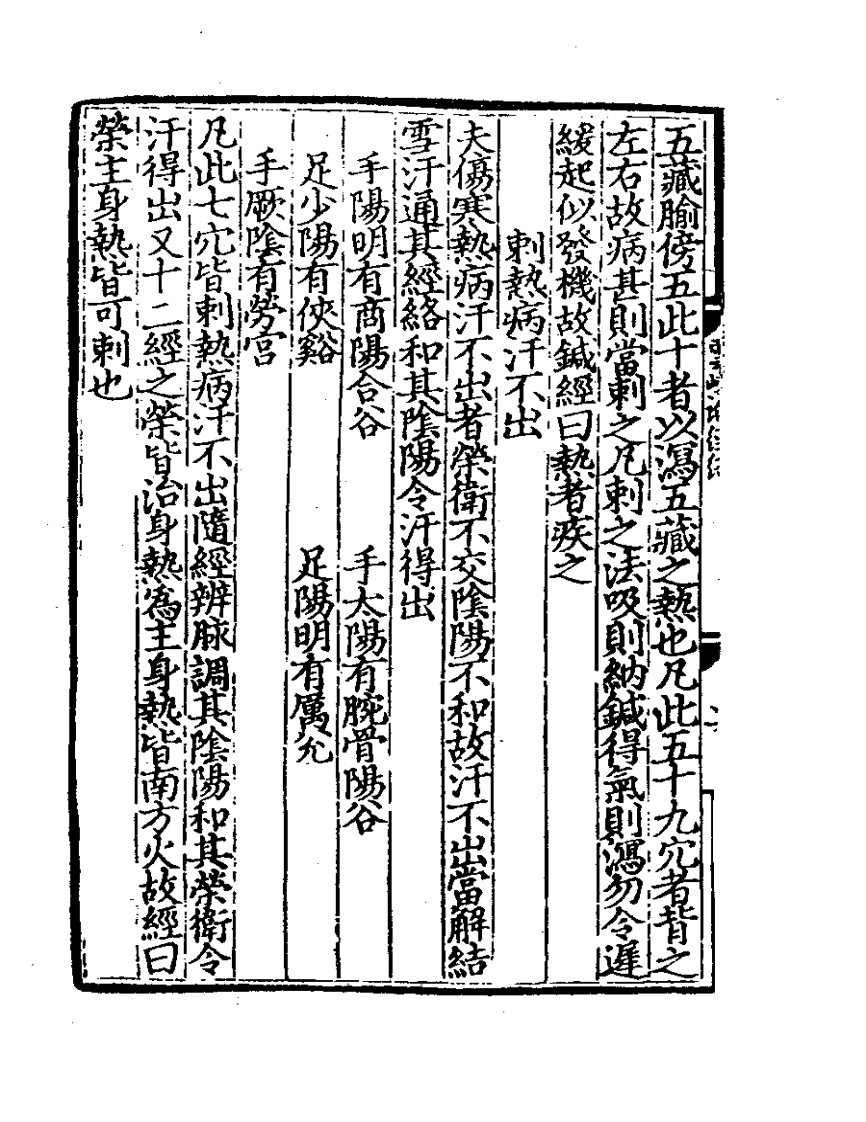 五藏腧傍五此十者以瀉五藏之熱也凡此五十九穴者皆之
左右故病甚則當刺之凡刺之法吸則納鍼得氣則瀉勿令遲
緩起似發機故鍼經曰熱者疾之
刺熱病汗不出
夫傷寒熱病汗不出者榮衛不交陰陽不和故汗不出當解結
雪汗通其經絡和其陰陽令汗得出
手陽明有商陽合谷　手太陽有腕骨陽谷
足少陽有俠谿　足陽明有厲兊
手厥陰有勞宮
凡此七穴皆刺熱病汗不出隨經辨脉調其陰陽和其榮衛令
汗得出又十二經之榮皆治身熱為主身熱皆南方火故經曰
榮主身熱皆可刺也